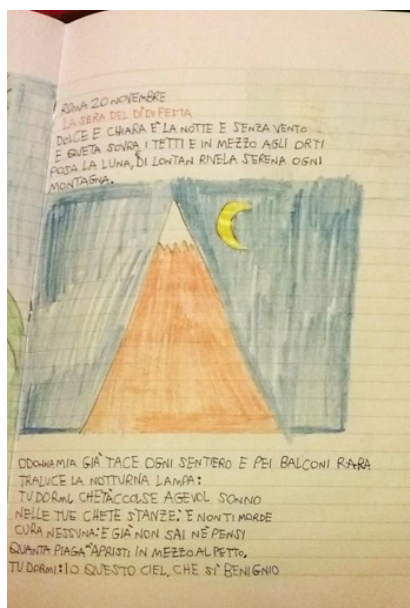 ROMA 20 NOVEMBRE
LA SERA DEL DÌ DI FESTA
DOLCE E CHIARA È LA NOTTE E SENZA VENTO
E QUETA SOVRA I TETTI E IN MEZZO AGLI ORTI
POSA LA LUNA, DI LONTAN RIVELA SERENA OGNI
MONTAGNA.
O DONNA MIA GIÀ TACE OGNI SENTIERO E PEI BALCONI RARA
TRALUCE LA NOTTURNA LAMPA:
TU DORMI, CHE T'ACCOLSE AGEVOL SONNO
NELLE TUE CHETE STANZE: E NON TI MORDE
CURA NESSUNA: E GIÀ NON SAI NÈ PENSI
QUANTA PIAGA APRISTI IN MEZZO AL PETTO.
TU DORMI: IO QUESTO CIEL, CHE SÌ BENIGNO